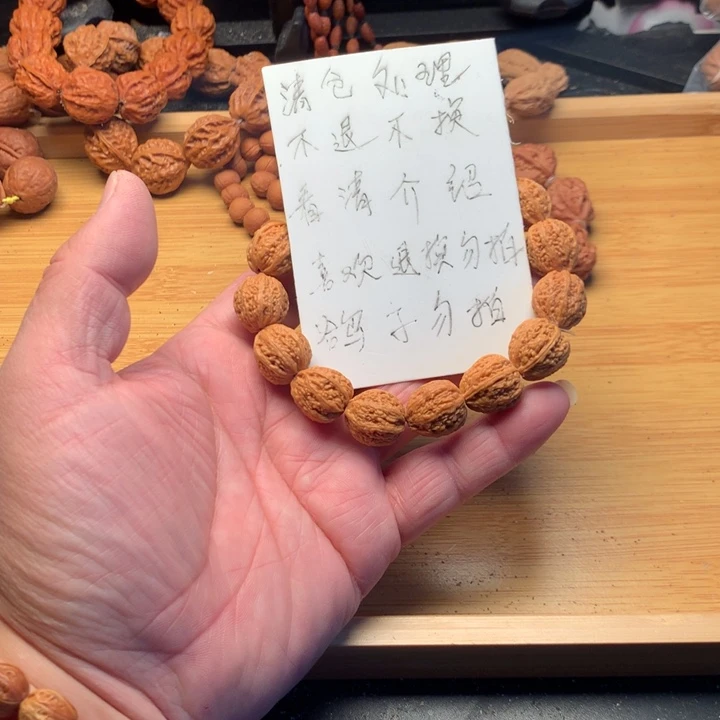 清仓处理
不退不换
看清介绍
喜欢退换勿拍
鸽子勿拍